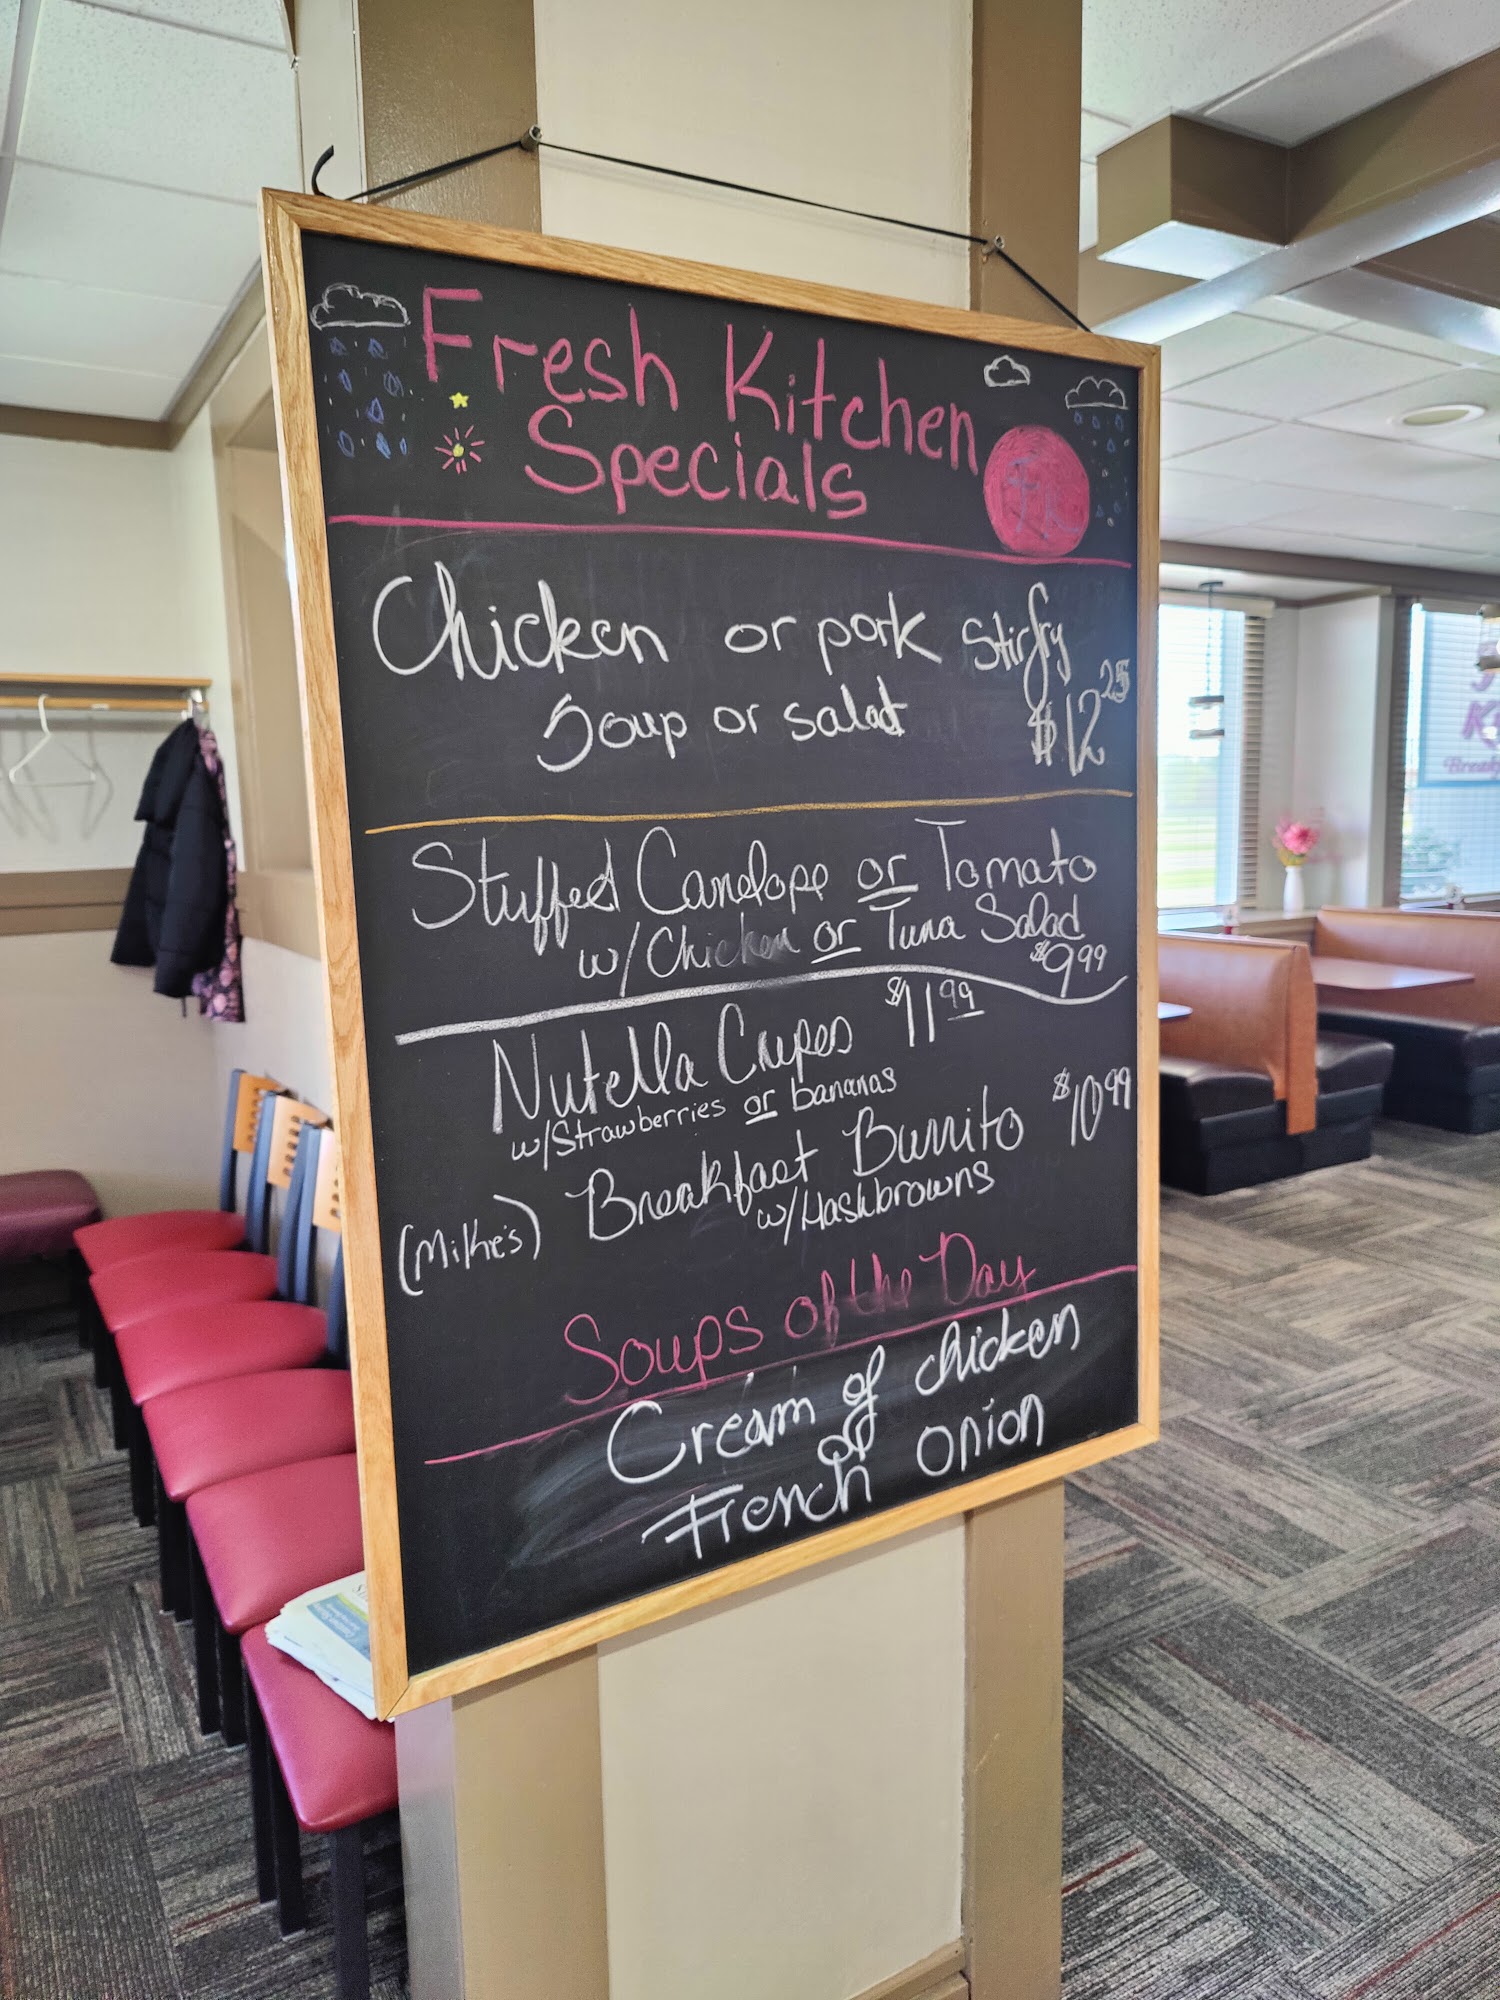 Fresh Kitchen
Specials
FK
Chicken or pork stirfry
Soup or salad
$12.25
Stuffed Canelope or Tomato
w/Chicken or Tuna Salad
$9.99
Nutella Crepes $11.99
w/Strawberries or bananas
(Mike's) Breakfast Burrito $10.99
w/Hashbrowns
Soups of the Day
Cream of chicken
French onion